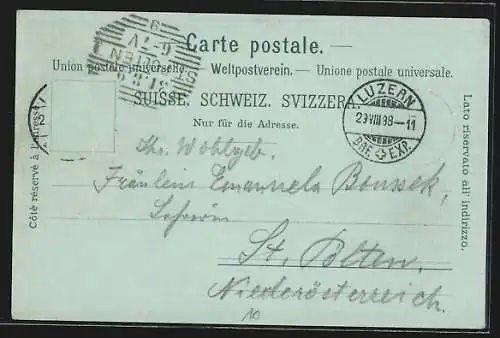 Carte postale.
Union postale universelle. — Weltpostverein. — Unione postale universale.
SUISSE. SCHWEIZ. SVIZZERA.
Nur für die Adresse.
Côté réservé à l'adresse.
Lato riservato all' indirizzo.
LUZERN
29 VIII 98 – 11
BRF. EXP.
Ihr. Wohlgeb.
Fräulein Emanuela Boussek,
St. Pölten.
Niederösterreich.
10